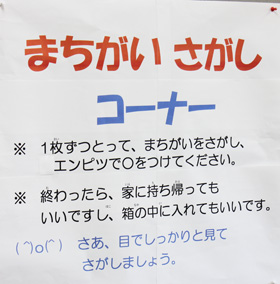 まちがい さがし
コーナー
※ 1枚ずつとって、まちがいをさがし、
エンピツで〇をつけてください。
※ 終わったら、家に持ち帰っても
いいですし、箱の中に入れてもいいです。
(^)o(^) さあ、目でしっかりと見て
さがしましょう。